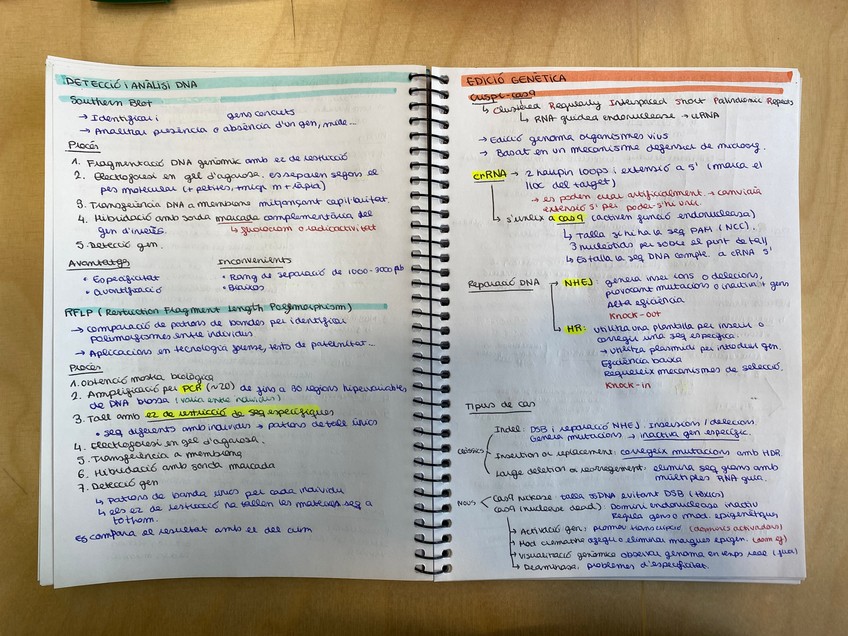 DETECCIÓ I ANÀLISI DNA
Southern Blot
→ Identificar i gens concrets
→ Analitzar presència o absència d'un gen, mide...
Procés
1. Fragmentació DNA genòmic amb ez de restricció
2. Electroforesi en gel d'agarosa. es separen segons de
pes molecular (+ petites, +migr m + ràpid)
3. Transferència DNA a membrana mitjançant capil·laritat.
4. Hibridació amb sonda marcada complementària del
gen d'interès. ↳ fluorocrom o radioactivitat
5. Detecció gen.
Avantatges
• Especificitat
• Quantificació
Inconvenients
• Rang de separació de 1000-3000 pb
•
RFLP (Restriction Fragment Length Polymorphism)
→ comparació de patrons de bandes per identificar
polimorfismes entre individus
→ Aplicacions en tecnologia forense, tests de paternitat...
Procés
1. Obtenció mostra biològica
2. Amplificació per PCR (~20) de fins a 30 regions hipervariables
de DNA brossa (varia entre individus)
3. Tall amb ez de restricció de seq específiques
• seq diferents amb individus → patrons de tall únics
4. Electroforesi en gel d'agarosa.
5. Transferència a membrana
6. Hibridació amb sonda marcada
7. Detecció gen
↳ Patrons de banda únics per cada individu
↳ els ez de restricció no tallen les mateixes seq a
tothom.
Es compara el resultat amb el del crim
EDICIÓ GENÈTICA
Crispr-cas9
↳ Clustered Regularly Interspaced Short Palindromic Repeats
↳ RNA guided endonuclease →
→ Edició genoma organismes vius
→ Basat en un mecanisme defensiu de microorg.
crRNA → 2 hairpin loops i extensió a 5' (marca el
lloc del target)
→ es poden crear artificialment → canviar
extensió 5' per poder-s'hi unir.
↳ s'uneix a cas9 (activen funció endonucleasa)
↳ Talla si hi ha la seq PAM (NCC).
3 nucleòtids per sobre el punt de tall
↳ Es talla la seq DNA comple. a cRNA 5'
Reparació DNA
NHEJ genera insercions o delecions,
provocant mutacions o inactiva + gens
Alta eficiència
Knock-out
HR: utilitza una plantilla per inserir o
corregir una seq específica.
→ Utilitza plasmidi per introduir gen.
Eficiència baixa
Requereix mecanismes de selecció.
Knock-in
Tipus de cas
CLÀSSICS
Indel: DSB i reparació NHEJ. Insersions / delecions.
Genera mutacions → inactiva gen específic.
Insertion or replacement: corregeix mutacions amb HDR
Large deletion or rearregement: elimina seq grans amb
múltiples RNA guia.
NOUS
cas9 nickase: talla ssDNA evitant DSB (tòxics)
cas9 (nuclease dead): Domini endonucleasa inactiu
Regula gens o mod. epigenètiques
→ Activació gen: promou transcripció (dominis activadors)
→ Mod cromatina afegir o eliminar marques epigen.
→ Visualització genòmica observar genoma en temps real
→ Deaminasa: problemes d'especificitat.